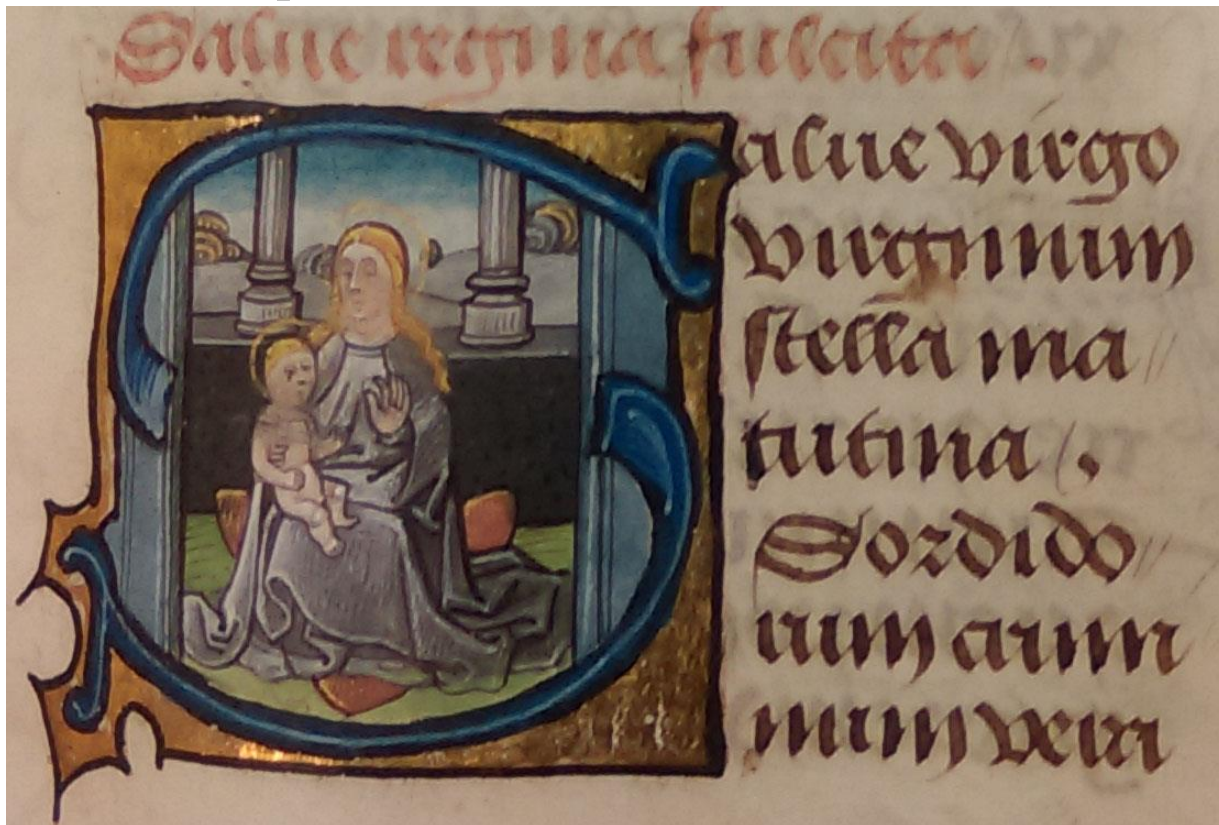 Salue regina fulcita .
Salue virgo
virginum
stella ma//
tutina .
Sordido//
rum crimi
num vera